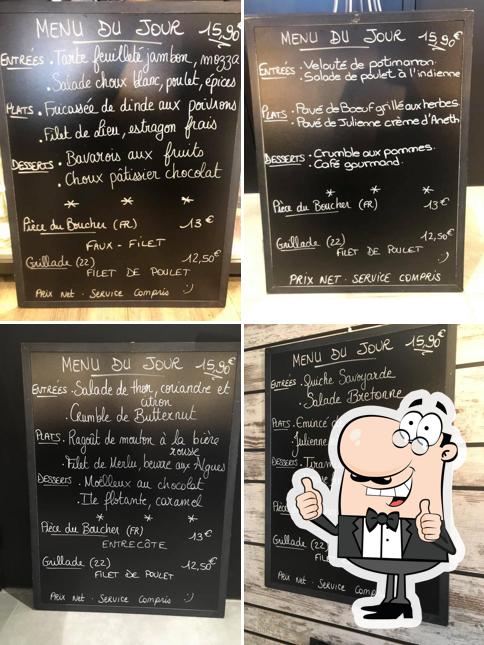 MENU DU JOUR 15,90€
ENTRÉES . Tarte feuilleté jambon, mozza
. Salade choux blanc, poulet, épices
PLATS . Fricassée de dinde aux poivrons
. Filet de Lieu, estragon frais
DESSERTS . Bavarois aux fruits
. Choux pâtissier chocolat
* * *
Pièce du Boucher (FR) 13€
FAUX - FILET
Grillade (22) 12,50€
FILET DE POULET
PRIX NET . SERVICE COMPRIS :)
MENU DU JOUR 15,90€
ENTRÉES . Velouté de potimarron.
. Salade de poulet à l'indienne
PLATS . Pavé de Boeuf grillé aux herbes
. Pavé de Julienne crème d'Aneth
DESSERTS . Crumble aux pommes.
. Café gourmand.
* * *
Pièce du Boucher (FR) 13€
Grillade (22) 12,50€
FILET DE POULET
PRIX NET . SERVICE COMPRIS :)
MENU DU JOUR 15,90€
ENTRÉES . Salade de thon, coriandre et
citron
. Crumble de Butternut
PLATS . Ragoût de mouton à la bière
rousse
. Filet de Merlu, beurre aux Algues
DESSERTS . Moëlleux au chocolat
. Ile flotante, caramel
* * *
Pièce du Boucher (FR) 13€
ENTRECÔTE
Grillade (22) 12,50€
FILET DE POULET
PRIX NET . SERVICE COMPRIS :)
MENU DU JOUR 15,90€
ENTRÉES . Quiche Savoyarde
. Salade Bretonne
PLATS . Emincé d
Julienne
DESSERTS . Tiram
Grillade (22)
PRIX NET . SERVICE COMP